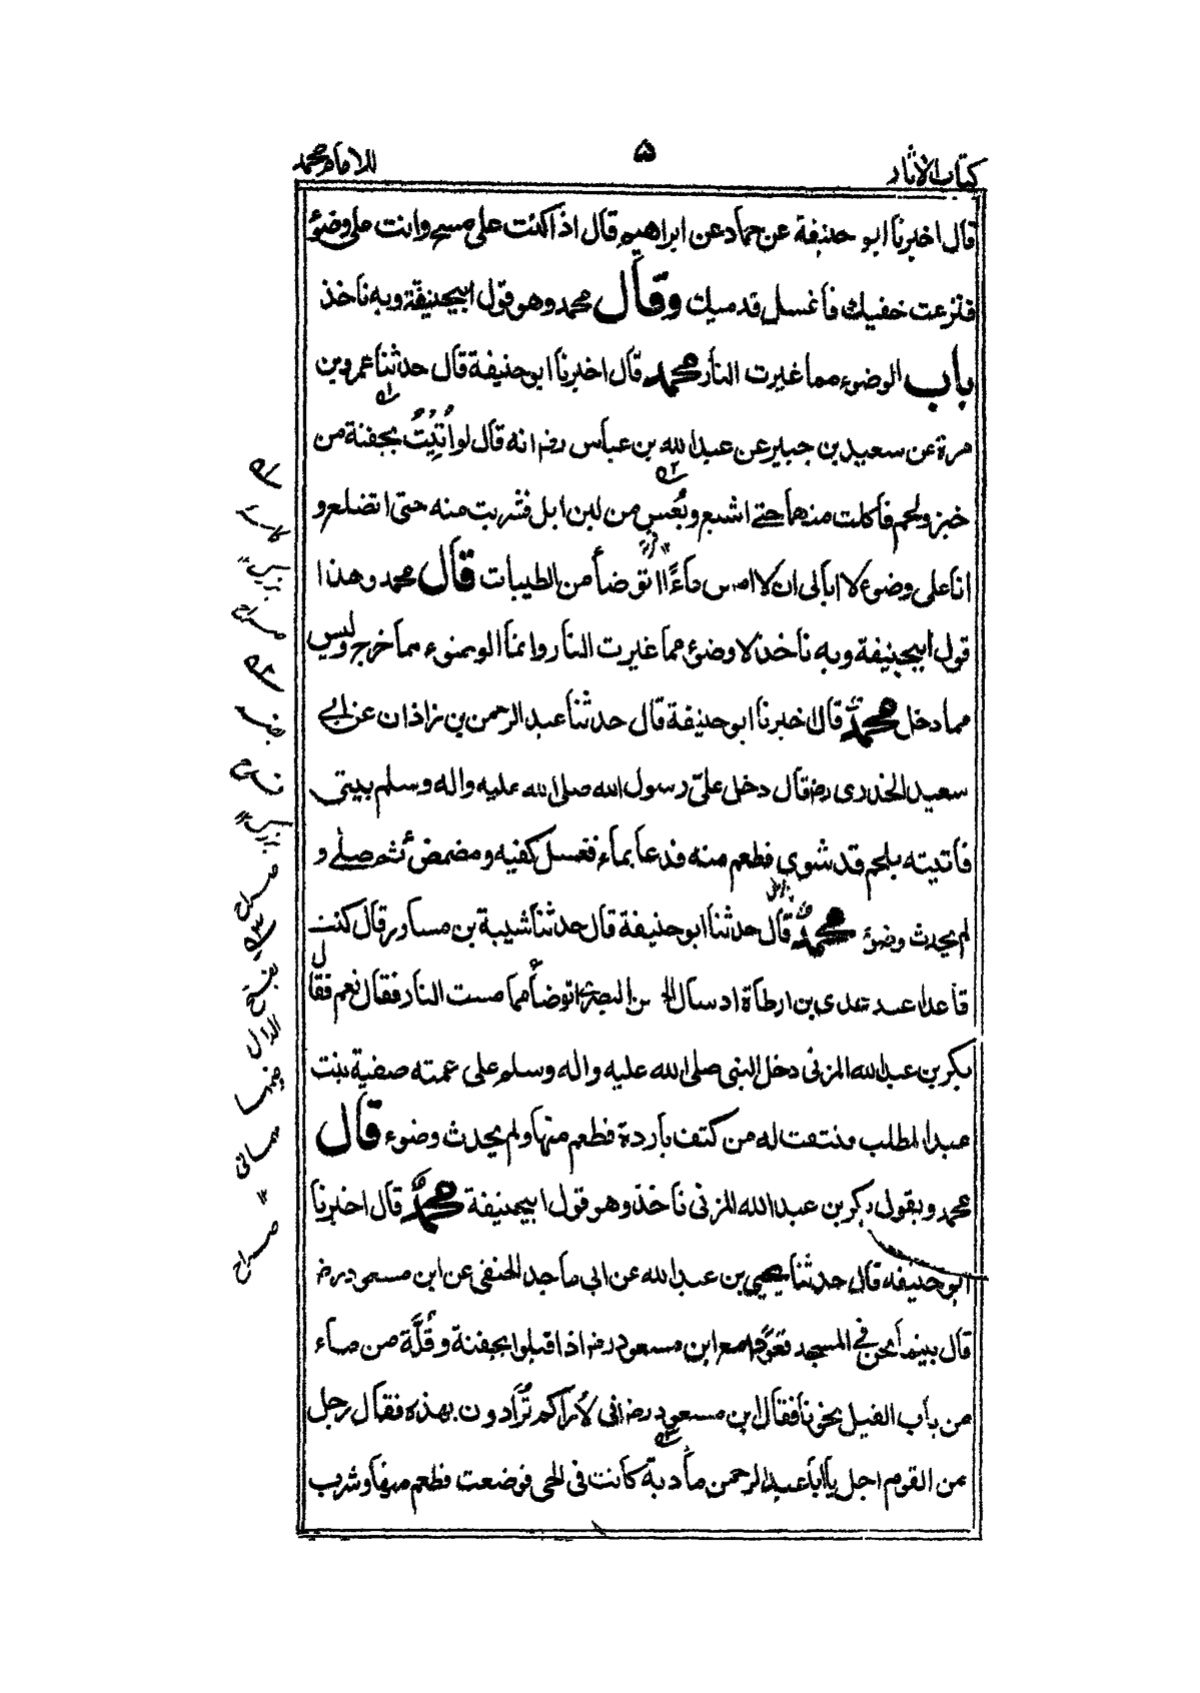 كتاب الاثار
۵
للامام محمد
قال اخبرنا ابو حنيفة عن حماد عن ابراهيم قال اذا كنت على مسح وانت على وضوء
فنزعت خفيك فاغسل قدميك وقال محمد وهو قول ابيحنيفة وبه ناخذ
باب الوضوء مما غيرت النار محمد قال اخبرنا ابو حنيفة قال حدثنا عمرو بن
مرة عن سعيد بن جبير عن عبد الله بن عباس رضه انه قال لو اُتِيْتُ بجفنة من
خبز ولحم فأكلت منها حتے اشبع وبُعُسٍ من لبن ابل فشربت منه حتى اتضلع و
انا على وضوء لا ابالى ان لا امس ماءً ااتوضأ من الطيبات قال محمد وهذا
قول ابيحنيفة وبه ناخذ لا وضوء مما غيرت النار وانما الوضوء مما خرج وليس
مما دخل محمد قال اخبرنا ابو حنيفة قال حدثنا عبد الرحمن بن زاذان عن ابي
سعيد الخدرى رضه قال دخل علىّ رسول الله صلى الله عليه واله وسلم بيتى
فاتيته بلحم قد شوي فطعم منه فدعا بماء فغسل كفيه ومضمض ثم صلے و
لم يحدث وضوءً محمد قال حدثنا ابو حنيفة قال حدثنا شيبة بن مساور قال كنت
قاعدا عند عدى بن ارطاة اذ سال الحسن البصرے اتوضأ مما مست النار فقال نعم فقال
بكر بن عبد الله المزنى دخل النبى صلى الله عليه واله وسلم على عمته صفية بنت
عبد المطلب فنتفت له من كتف باردة فطعم منها ولم يحدث وضوء قال
محمد وبقول بكر بن عبد الله المزنى ناخذ وهو قول ابيحنيفة محمد قال اخبرنا
ابو حنيفه قال حدثنا يحيي بن عبد الله عن ابى ماجد الحنفى عن ابن مسعود رضه
قال بينما نحن في المسجد قعودا مع ابن مسعود رضه اذ اقبلوا بجفنة وقُلَّة من ماء
من باب الفيل نحونا فقال ابن مسعود رضه انى لأراكم تُرَادون بهذه فقال رجل
من القوم اجل يا ابا عبد الرحمن مادبة كانت فى الحى فوضعت فطعم منها وشرب
كاسه
بزرگ
صراح
قدح
بزرگ
صراح
بفتح
الدال
وضمها
مهمانى
صراح